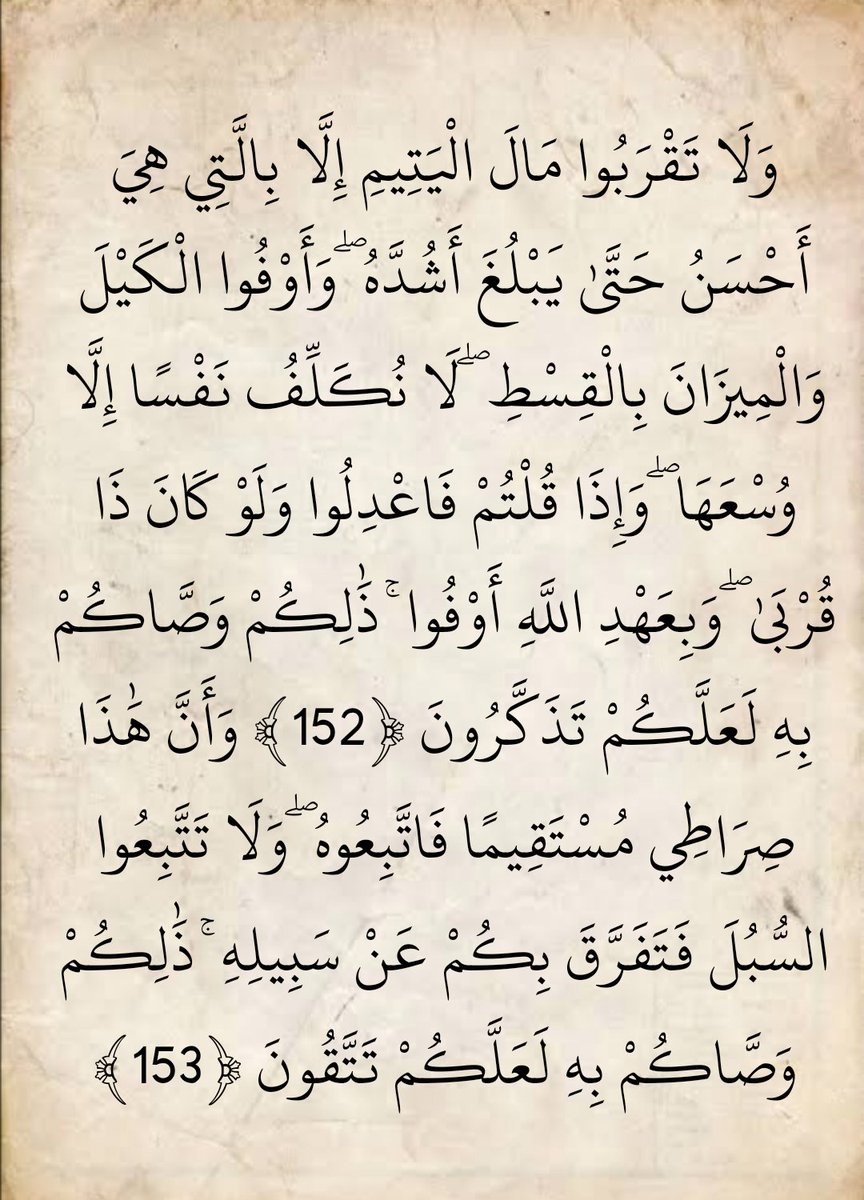 وَلَا تَقْرَبُوا مَالَ الْيَتِيمِ إِلَّا بِالَّتِي هِيَ
أَحْسَنُ حَتَّىٰ يَبْلُغَ أَشُدَّهُ ۖ وَأَوْفُوا الْكَيْلَ
وَالْمِيزَانَ بِالْقِسْطِ ۖ لَا نُكَلِّفُ نَفْسًا إِلَّا
وُسْعَهَا ۖ وَإِذَا قُلْتُمْ فَاعْدِلُوا وَلَوْ كَانَ ذَا
قُرْبَىٰ ۖ وَبِعَهْدِ اللَّهِ أَوْفُوا ۚ ذَٰلِكُمْ وَصَّاكُمْ
بِهِ لَعَلَّكُمْ تَذَكَّرُونَ ﴿152﴾ وَأَنَّ هَٰذَا
صِرَاطِي مُسْتَقِيمًا فَاتَّبِعُوهُ ۖ وَلَا تَتَّبِعُوا
السُّبُلَ فَتَفَرَّقَ بِكُمْ عَنْ سَبِيلِهِ ۚ ذَٰلِكُمْ
وَصَّاكُمْ بِهِ لَعَلَّكُمْ تَتَّقُونَ ﴿153﴾